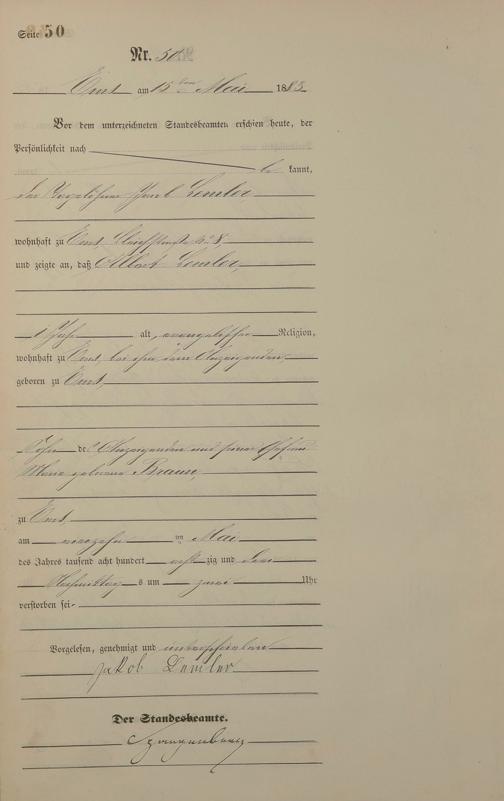 Seite 50
Nr. 50
Ems am 15ten Mai 1883
Vor dem unterzeichneten Standesbeamten erschien heute, der
Persönlichkeit nach
be kannt,
der Tagelöhner Jacob Demler
wohnhaft zu Ems, No 8,
und zeigte an, daß Albert Demler,
1 Jahr alt, evangelischer Religion,
wohnhaft zu Ems, bei ihm dem Anzeigenden,
geboren zu Ems,
Sohn des Anzeigenden und seiner Ehefrau
geborene Braun,
zu Ems,
am vierzehn ten Mai
des Jahres tausend acht hundert acht zig und drei
Nachmittag s um zwei Uhr
verstorben sei.
Vorgelesen, genehmigt und unterschrieben
Jakob Demler
Der Standesbeamte.